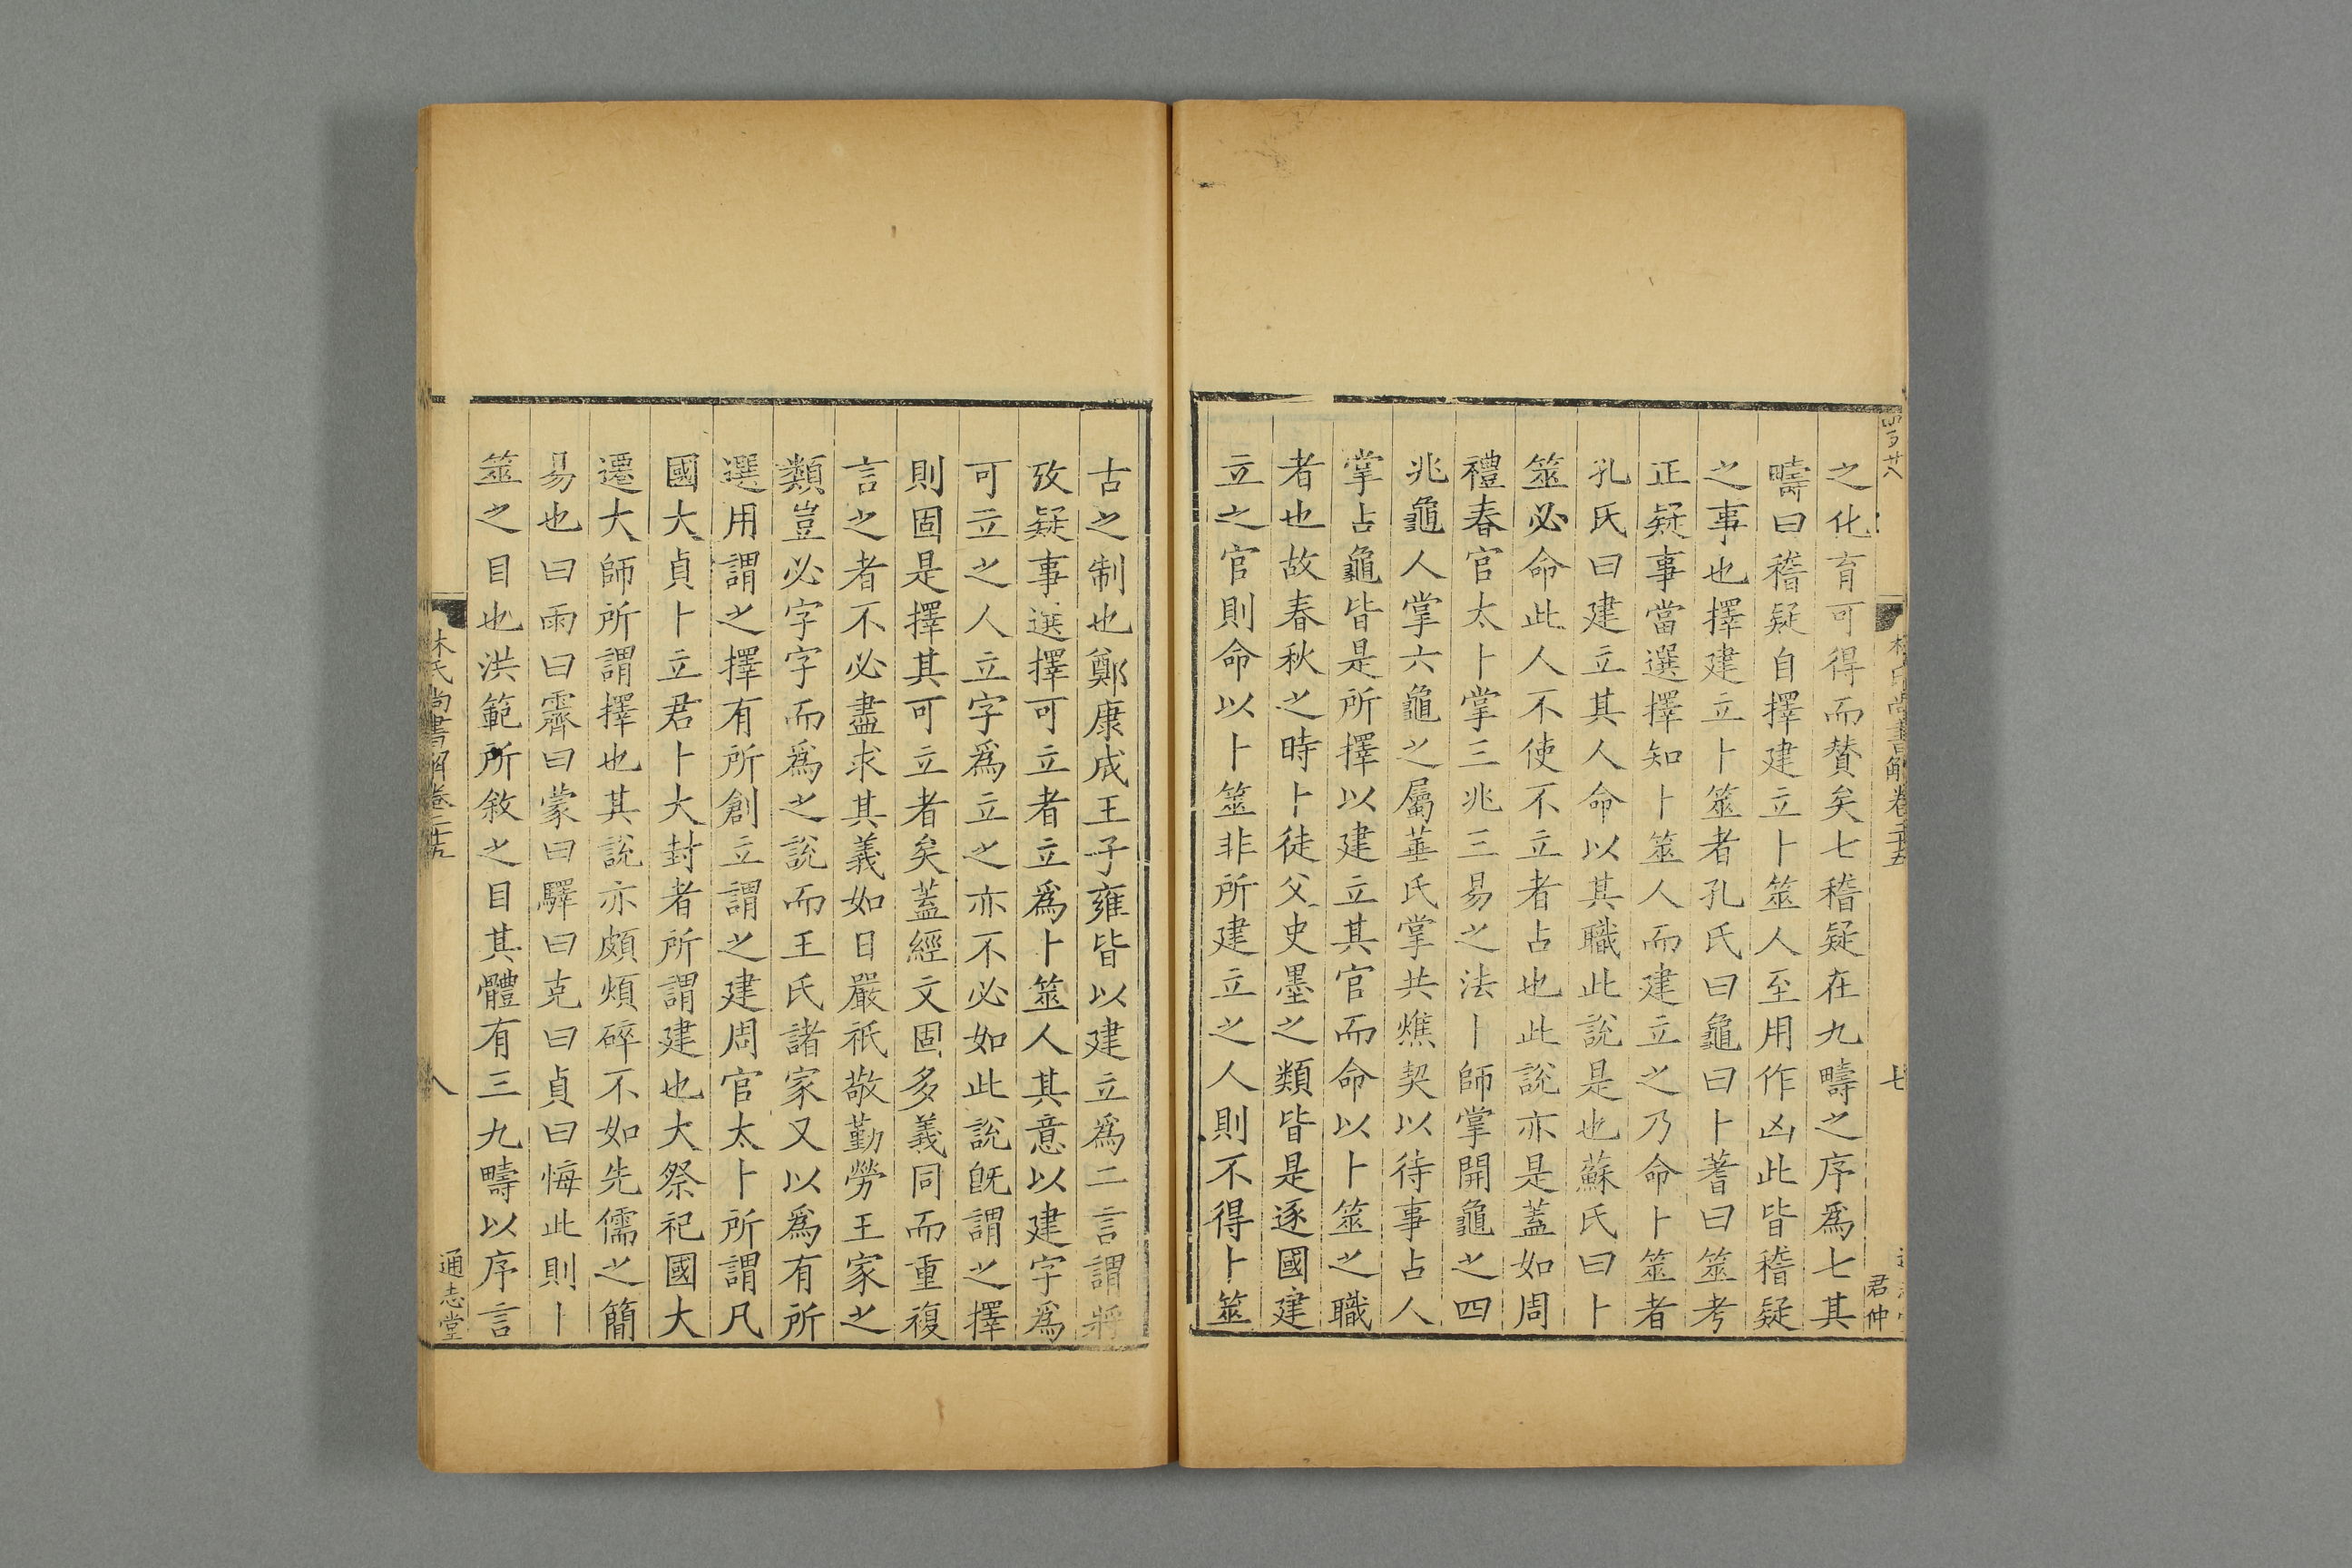 之化育可得而贊矣七稽疑在九疇之序爲七其
疇曰稽疑自擇建立卜筮人至用作凶此皆稽疑
之事也擇建立卜筮者孔氏曰龜曰卜蓍曰筮考
正疑事當選擇知卜筮人而建立之乃命卜筮者
孔氏曰建立其人命以其職此說是也蘇氏曰卜
筮必命此人不使不立者占也此說亦是蓋如周
禮春官太卜掌三兆三易之法卜師掌開龜之四
兆龜人掌六龜之屬菙氏掌共燋契以待事占人
掌占龜皆是所擇以建立其官而命以卜筮之職
者也故春秋之時卜徒父史墨之類皆是逐國建
立之官則命以卜筮非所建立之人則不得卜筮
君仲
古之制也鄭康成王子雍皆以建立爲二言謂將
攷疑事選擇可立者立爲卜筮人其意以建字爲
可立之人立字爲立之亦不必如此說旣謂之擇
則固是擇其可立者矣蓋經文固多義同而重複
言之者不必盡求其義如日嚴祇敬勤勞王家之
類豈必字字而爲之說而王氏諸家又以爲有所
選用謂之擇有所創立謂之建周官太卜所謂凡
國大貞卜立君卜大封者所謂建也大祭祀國大
遷大師所謂擇也其說亦頗煩碎不如先儒之簡
易也曰雨曰霽曰蒙曰驛曰克曰貞曰悔此則卜
筮之目也洪範所敘之目其體有三九疇以序言
林氏尚書解卷二十五
八
通志堂